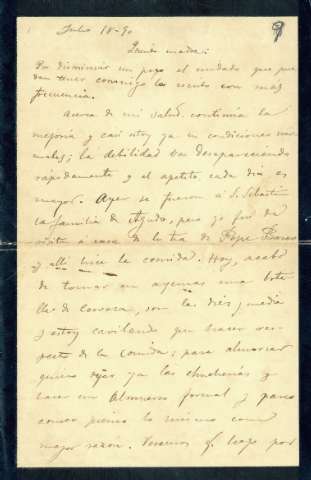 Julio 18-90
Querida madre:
Por disminuir un poco el cuidado que pue
dan tener conmigo le escribo con mas
frecuencia.
Acerca de mi salud continúa la
mejoría y casi estoy ya en condiciones nor
males; la debilidad va desapareciendo
rápidamente y el apetito cada dia es
mayor. Ayer se fueron a S. Sebastián
la familia de Agudo, pero yo fuí de
visita a casa de la tia de Pepe
y allí hice la comida. Hoy, acabo
de tomar en ayunas una bote
lla de cerveza, son las diez y media
y estoy cavilando que hacer res-
pecto de la comida; para almorzar
quiero dejar ya las chuletas y
hacer un almuerzo formal y para
comer pienso lo mismo con
mayor razón. Veremos q. hago por